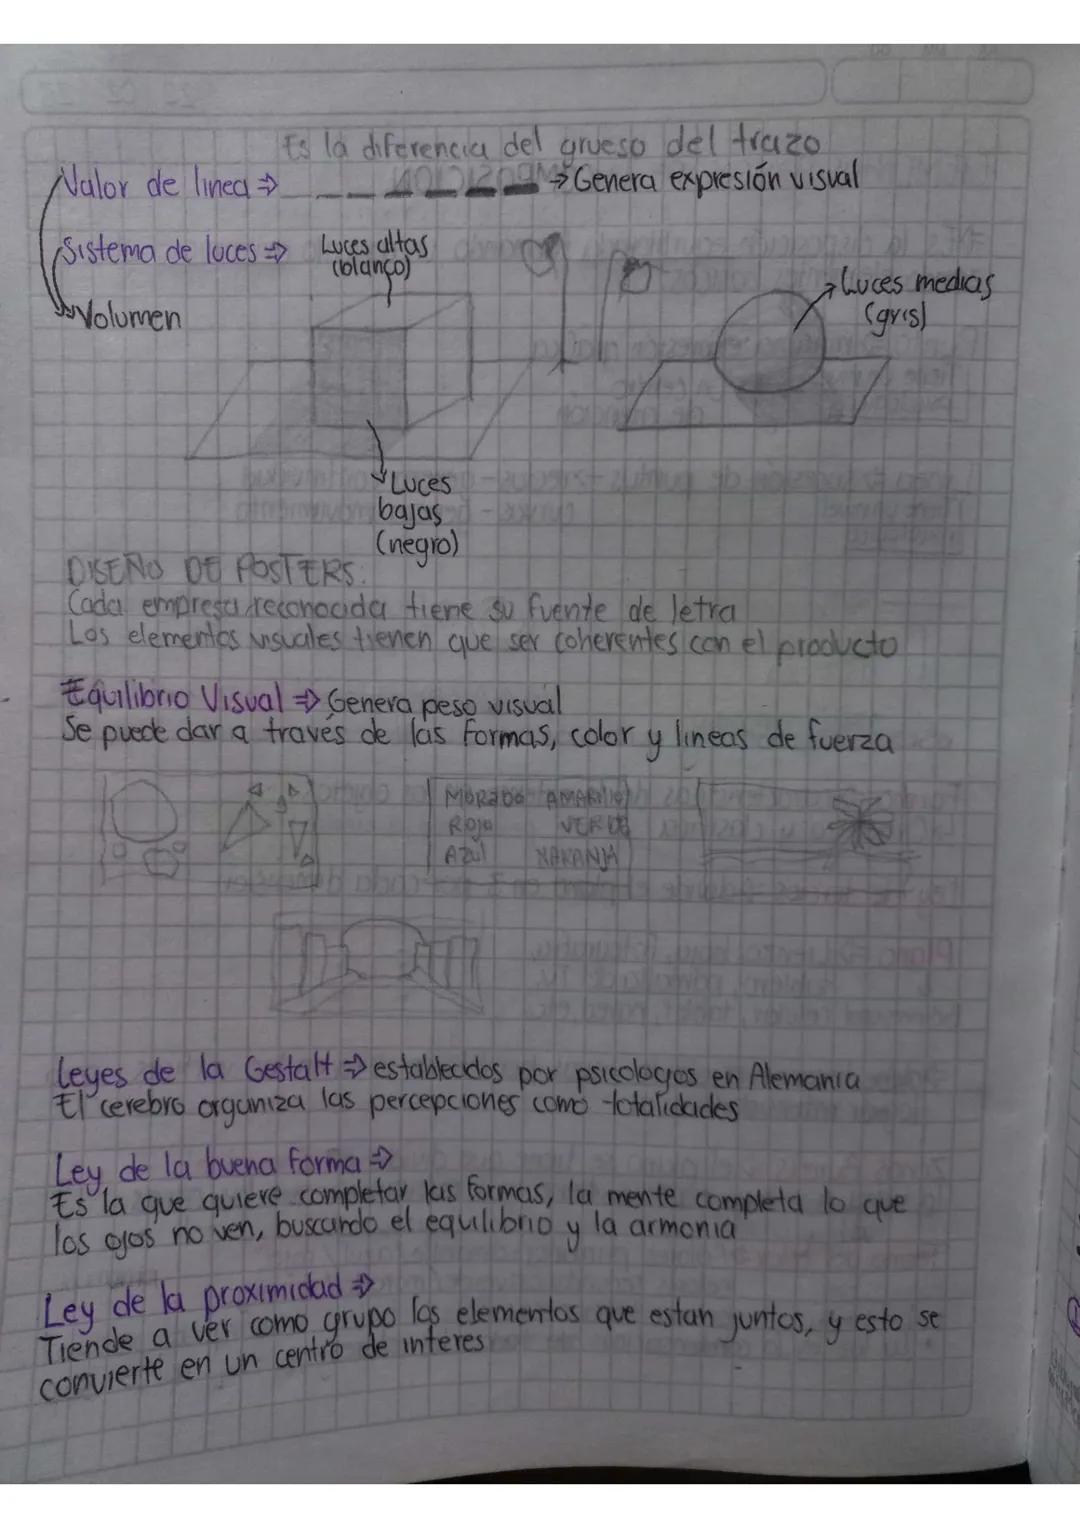 Es la diferencia del grueso del trazo
Valor de linea ⇒ → Genera expresión visual
Sistema de luces ⇒ Luces altas
(blanco)
Volumen
Luces medias
(gris)
Luces
bajas
(negro)
DISEÑO DE POSTERS.
Cada empresa reconocida tiene su fuente de letra
Los elementos visuales tienen que ser coherentes con el producto
Equilibrio Visual ⇒ Genera peso visual
Se puede dar a través de las formas, color y lineas de fuerza
MORADO AMARILLO
ROJO VERDE
AZUl NARANJA
Leyes de la Gestalt ⇒ establecidos por psicologos en Alemania
El cerebro organiza las percepciones como totalidades
Ley de la buena forma ⇒
Es la que quiere completar las formas, la mente completa lo que
los ojos no ven, buscando el equilibrio y la armonia
Ley de la proximidad ⇒
Tiende a ver como grupo los elementos que estan juntos, y esto se
convierte en un centro de interes